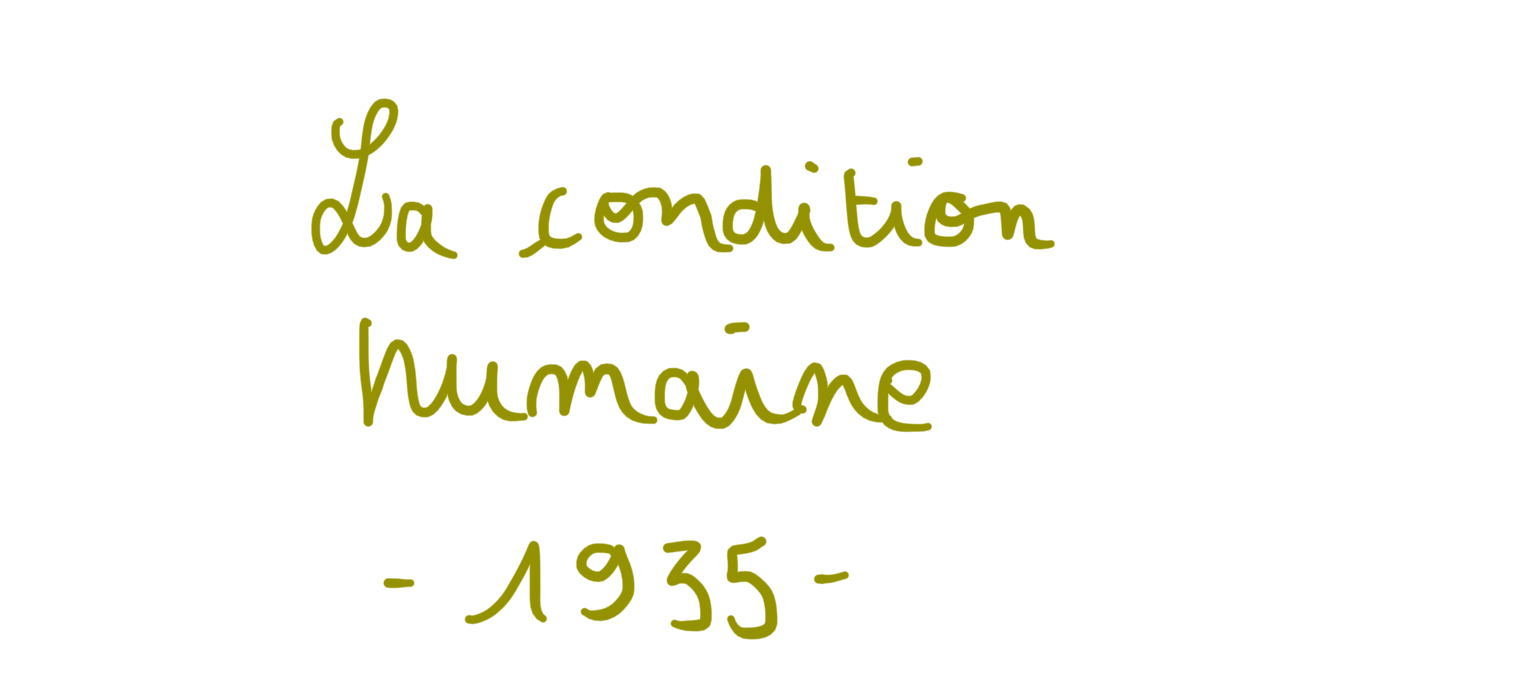 La condition
humaine
- 1935-